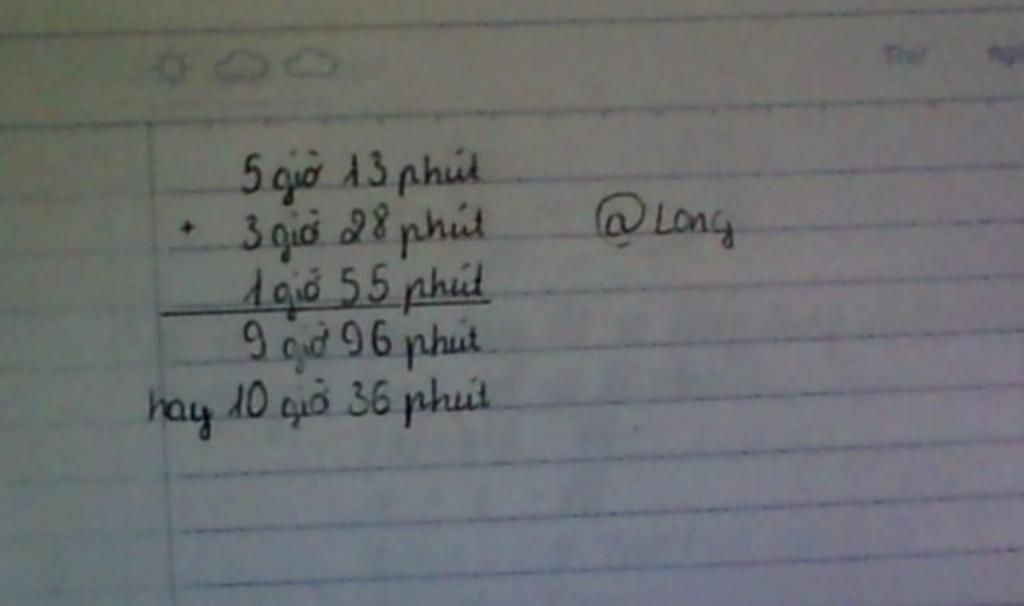 Thứ
5 giờ 13 phút
+ 3 giờ 28 phút @Long
1 giờ 55 phút
9 giờ 96 phút
hay 10 giờ 36 phút